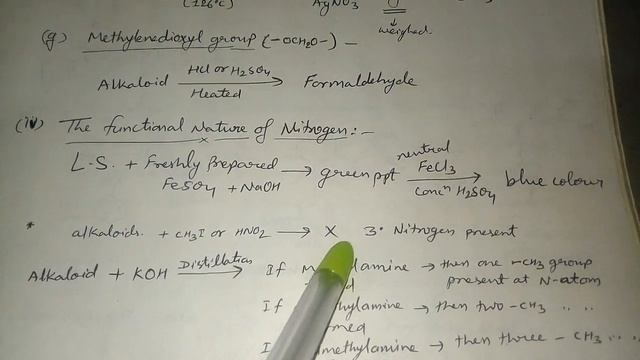 (126°C) AgNO3
weighed.
(g) Methylenedioxyl group (-OCH2O-) -
Alkaloid HCl or H2SO4 → Formaldehyde
Heated
(iv) The functional Nature of Nitrogen:-
L.S. + Freshly Prepared FeSO4 + NaOH → green ppt neutral FeCl3 Concn H2SO4 → blue colour
* alkaloids. + CH3I or HNO2 → X 3° Nitrogen present
Alkaloid + KOH Distillation → If lamine → then one -CH3 group
present at N-atom
If hylamine → then two -CH3 .. ..
med
methylamine → then three - CH3 ...